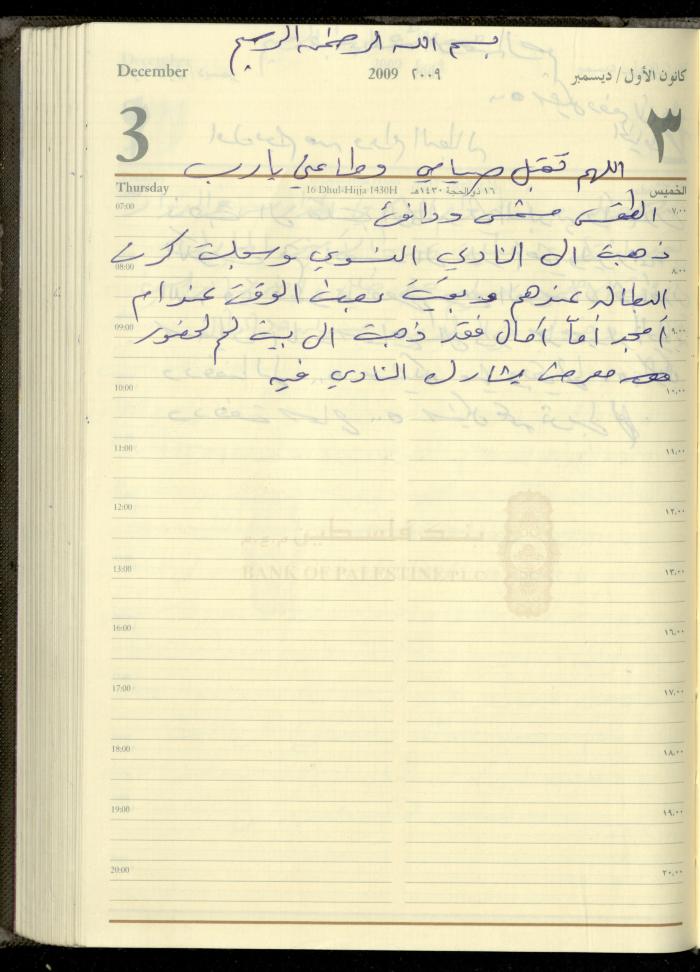 بسم الله الرحمن الرحيم
December 2009 ٢٠٠٩ كانون الأول / ديسمبر
3 ٣
اللهم تقبل صيامي وطاعتي يارب
Thursday 16 Dhul-Hijja 1430H ١٦ ذو الحجة ١٤٣٠هـ الخميس
07:00 ٧,٠٠
الطقس مشمس ودافئ
ذهبت الى النادي النسوي وسجلت كرت
08:00 ٨,٠٠
البطالة عندهم وبقيت بعض الوقت عند ام
09:00 ٩,٠٠
أمجد أمّا أمال فقد ذهبت الى بيت لحم لحضور
معرض يشارك النادي فيه
10:00 ١٠,٠٠
11:00 ١١,٠٠
12:00 ١٢,٠٠
بنك فلسطين م.ع.م
BANK OF PALESTINE PLC
13:00 ١٣,٠٠
16:00 ١٦,٠٠
17:00 ١٧,٠٠
18:00 ١٨,٠٠
19:00 ١٩,٠٠
20:00 ٢٠,٠٠